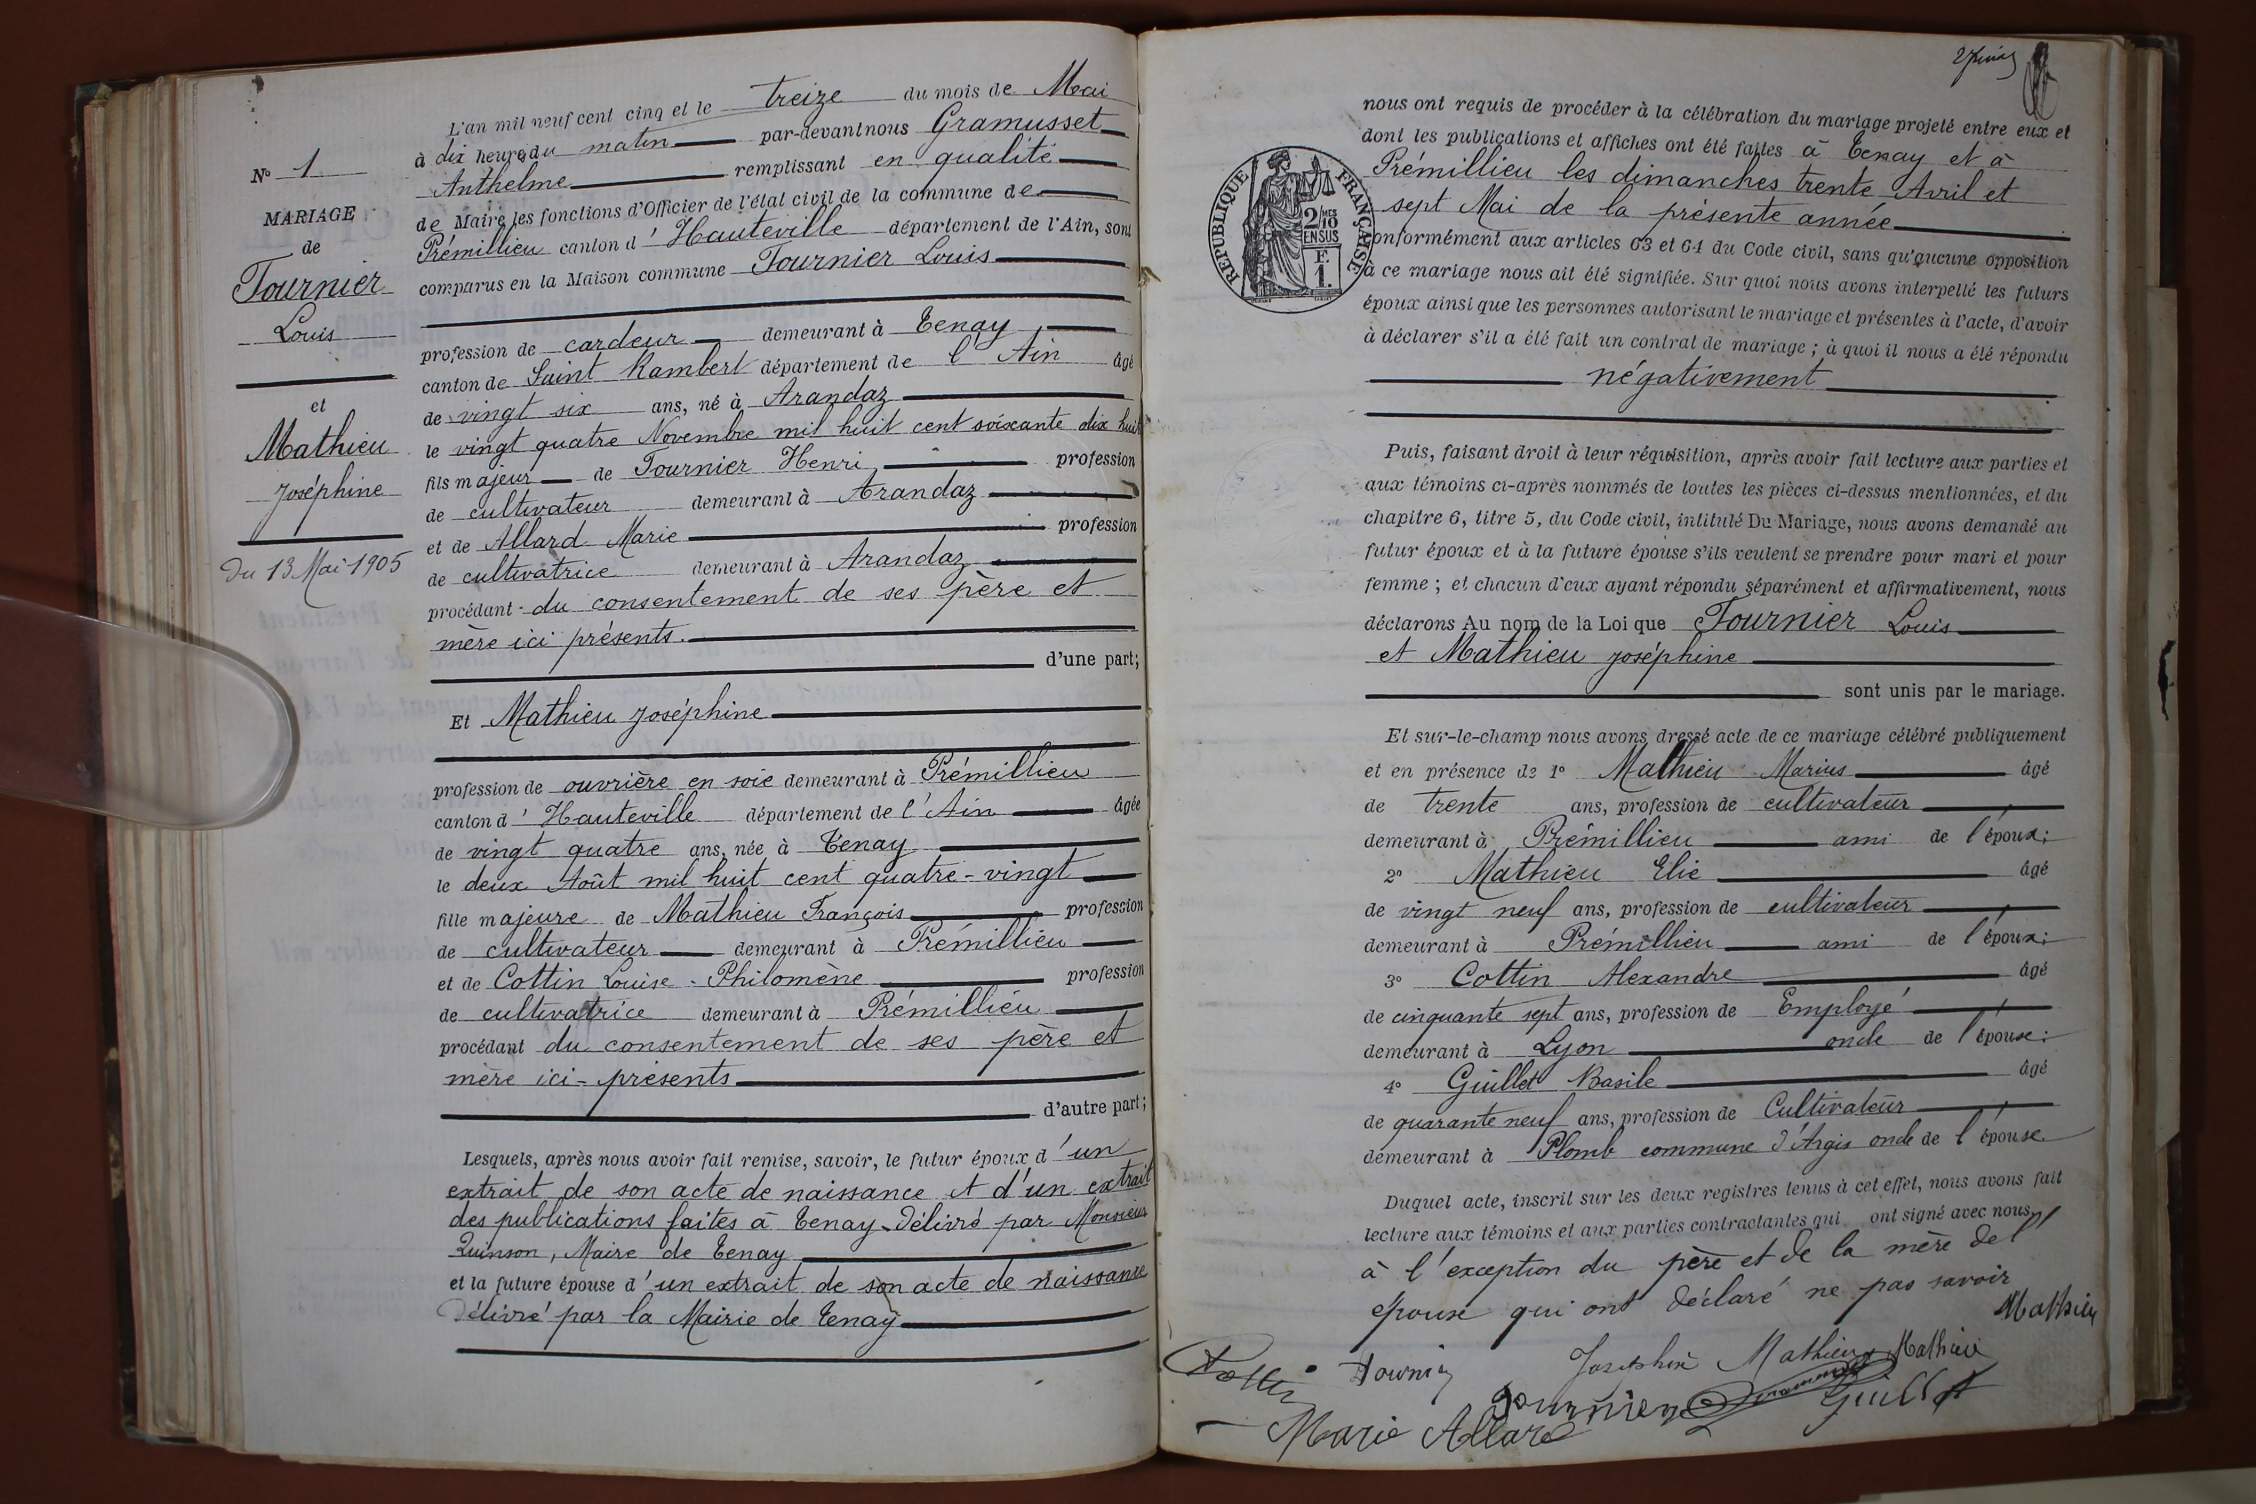 N° 1
MARIAGE
de
Fournier
Louis
et
Mathieu
Joséphine
Du 13 Mai 1905
L'an mil neuf cent cinq et le treize du mois de Mai
à dix heures du matin par-devant nous Gramusset
Anthelme remplissant en qualité
de Maire les fonctions d'Officier de l'état civil de la commune de
Prémillieu canton d'Hauteville département de l'Ain, sont
comparus en la Maison commune Fournier Louis
profession de cardeur demeurant à Tenay
canton de Saint Rambert département de l'Ain âgé
de vingt six ans, né à Arandaz
le vingt quatre Novembre mil huit cent soixante dix huit
fils majeur de Fournier Henri profession
de cultivateur demeurant à Arandaz
et de Allard Marie profession
de cultivatrice demeurant à Arandaz
procédant du consentement de ses père et
mère ici présents.
d'une part;
Et Mathieu Joséphine
profession de ouvrière en soie demeurant à Prémillieu
canton d'Hauteville département de l'Ain âgée
de vingt quatre ans, née à Tenay
le deux Août mil huit cent quatre-vingt
fille majeure de Mathieu François profession
de cultivateur demeurant à Prémillieu
et de Cottin Louise-Philomène profession
de cultivatrice demeurant à Prémillieu
procédant du consentement de ses père et
mère ici-présents
d'autre part;
Lesquels, après nous avoir fait remise, savoir, le futur époux d'un
extrait de son acte de naissance et d'un extrait
des publications faites à Tenay délivré par Monsieur
Quinson, Maire de Tenay
et la future épouse d'un extrait de son acte de naissance
délivré par la Mairie de Tenay
RÉPUBLIQUE FRANÇAISE
2/10MES
EN SUS
F.
1.
nous ont requis de procéder à la célébration du mariage projeté entre eux et
dont les publications et affiches ont été faites à Tenay et à
Prémillieu les dimanches trente Avril et
sept Mai de la présente année
conformément aux articles 63 et 64 du Code civil, sans qu'aucune opposition
à ce mariage nous ait été signifiée. Sur quoi nous avons interpellé les futurs
époux ainsi que les personnes autorisant le mariage et présentes à l'acte, d'avoir
à déclarer s'il a été fait un contrat de mariage; à quoi il nous a été répondu
négativement
Puis, faisant droit à leur réquisition, après avoir fait lecture aux parties et
aux témoins ci-après nommés de toutes les pièces ci-dessus mentionnées, et du
chapitre 6, titre 5, du Code civil, intitulé Du Mariage, nous avons demandé au
futur époux et à la future épouse s'ils veulent se prendre pour mari et pour
femme; et chacun d'eux ayant répondu séparément et affirmativement, nous
déclarons Au nom de la Loi que Fournier Louis
et Mathieu Joséphine
sont unis par le mariage.
Et sur-le-champ nous avons dressé acte de ce mariage célébré publiquement
et en présence de 1° Mathieu Marius âgé
de trente ans, profession de cultivateur
demeurant à Prémillieu ami de l'époux;
2° Mathieu Elie âgé
de vingt neuf ans, profession de cultivateur
demeurant à Prémillieu ami de l'époux;
3° Cottin Alexandre âgé
de cinquante sept ans, profession de Employé
demeurant à Lyon oncle de l'épouse;
4° Guillot Basile âgé
de quarante neuf ans, profession de Cultivateur
demeurant à Plomb commune d'Argis oncle de l'épouse
Duquel acte, inscrit sur les deux registres tenus à cet effet, nous avons fait
lecture aux témoins et aux parties contractantes qui ont signé avec nous,
à l'exception du père et de la mère de l'
épouse qui ont déclaré ne pas savoir
Mathieu
Cottin Fournier Joséphine Mathieu Mathieu
Fournier Gramusset Guillot
Marie Allard